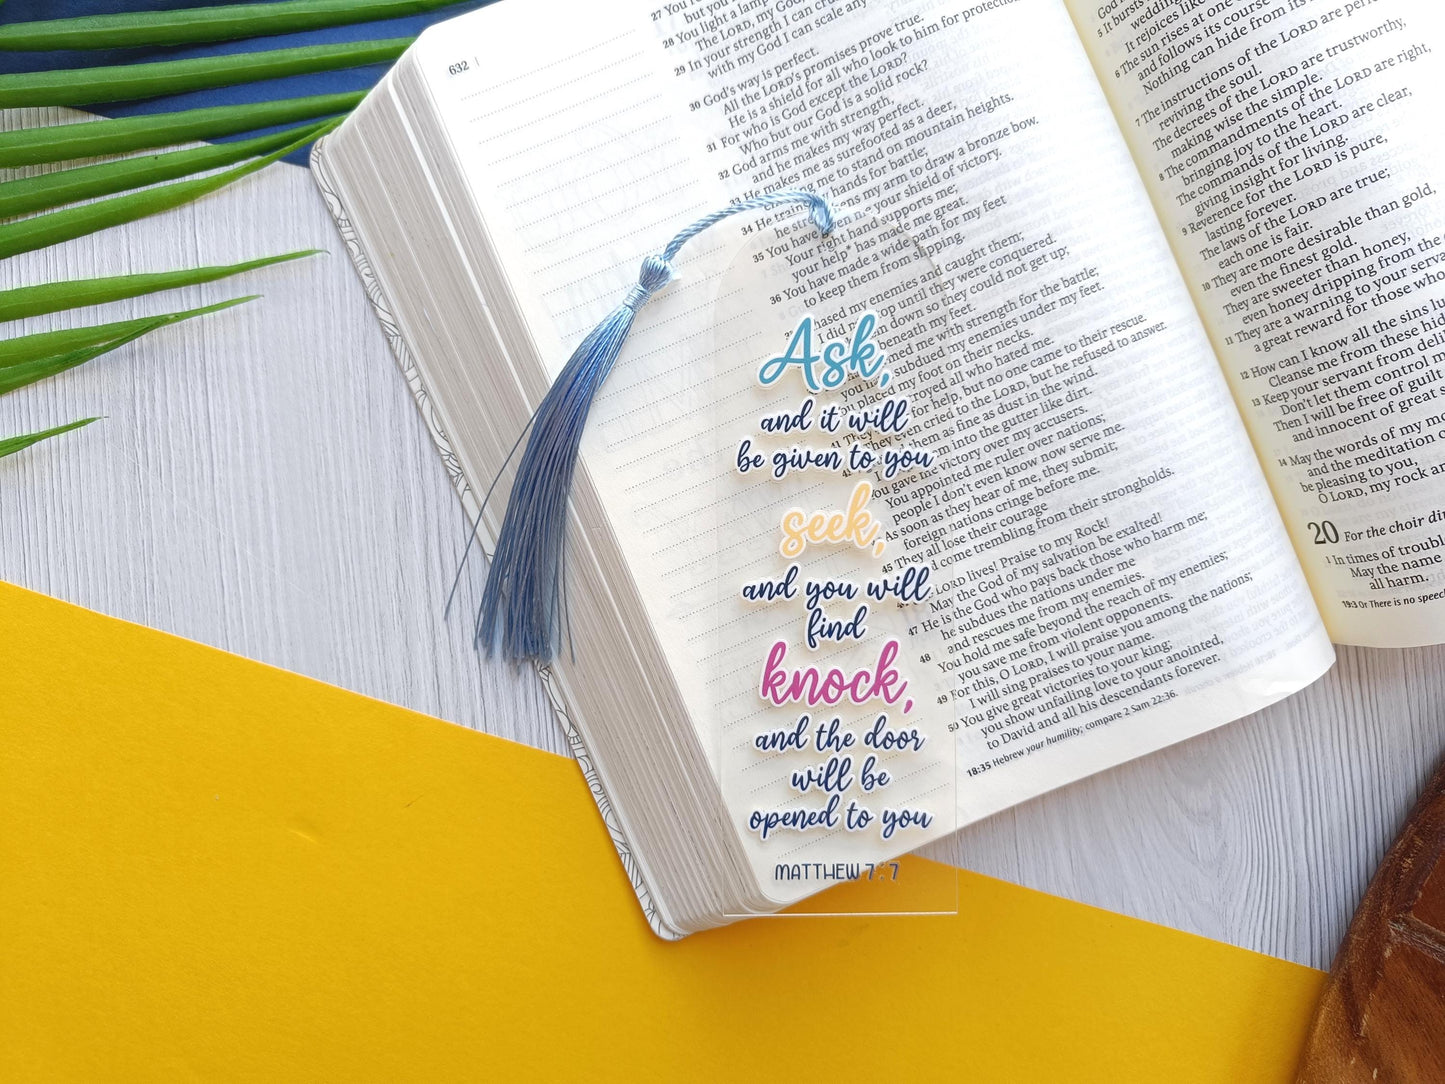 632
27 You
but you
28 You light a lamp
The LORD, my God
29 In your strength I can
with my God I can scale any
30 God's way is perfect.
All the LORD's promises prove true.
He is a shield for all who look to him for protection
31 For who is God except the LORD?
Who but our God is a solid rock?
32 God arms me with strength,
and he makes my way perfect.
33 He makes me as surefooted as a deer,
me to stand on mountain heights.
34 He trains hands for battle;
he my arm to draw a bronze bow.
35 You have me your shield of victory.
Your right hand supports me;
your help* has made me great.
36 You have made a wide path for my feet
to keep them from slipping.
my enemies and caught them;
until they were conquered.
down so they could not get up;
beneath my feet.
me with strength for the battle;
subdued my enemies under my feet.
placed my foot on their necks.
all who hated me.
for help, but no one came to their rescue.
even cried to the LORD, but he refused to answer.
them as fine as dust in the wind.
into the gutter like dirt.
gave victory over my accusers.
You appointed me ruler over nations;
people I don't even know now serve me.
As soon as they hear of me, they submit;
foreign nations cringe before me.
45 They all lose their courage
come trembling from their strongholds.
LORD lives! Praise to my Rock!
May the God of my salvation be exalted!
47 He is the God who pays back those who harm me;
he subdues the nations under me
48 and rescues me from my enemies.
You hold me safe beyond the reach of my enemies;
you save me from violent opponents.
49 For this, O LORD, I will praise you among the nations;
I will sing praises to your name.
50 You give great victories to your king;
you show unfailing love to your anointed,
to David and all his descendants forever.
18:35 Hebrew your humility; compare 2 Sam 22:36.
Ask,
and it will
be given to you
seek,
and you will
find
knock,
and the door
will be
opened to you
MATTHEW 7:7
God
5 It bursts
wedding
It rejoices
6 The sun rises at one
and follows its course
Nothing can hide from its
7 The instructions of the LORD are
reviving the soul.
The decrees of the LORD are trustworthy,
making wise the simple.
8 The commandments of the LORD are right,
bringing joy to the heart.
The commands of the LORD are clear,
giving insight for living.
9 Reverence for the LORD is pure,
lasting forever.
The laws of the LORD are true;
each one is fair.
10 They are more desirable than gold,
even the finest gold.
They are sweeter than honey,
even honey dripping from the
11 They are a warning to your
a great reward for those who
12 How can I know all the sins
Cleanse me from these
13 Keep your servant from
Don't let them control
Then I will be free of guilt
and innocent of great
14 May the words of my
and the meditation
be pleasing to you,
O LORD, my rock
20 For the choir
1 In times of
May the name
all harm.
19:3 Or There is no